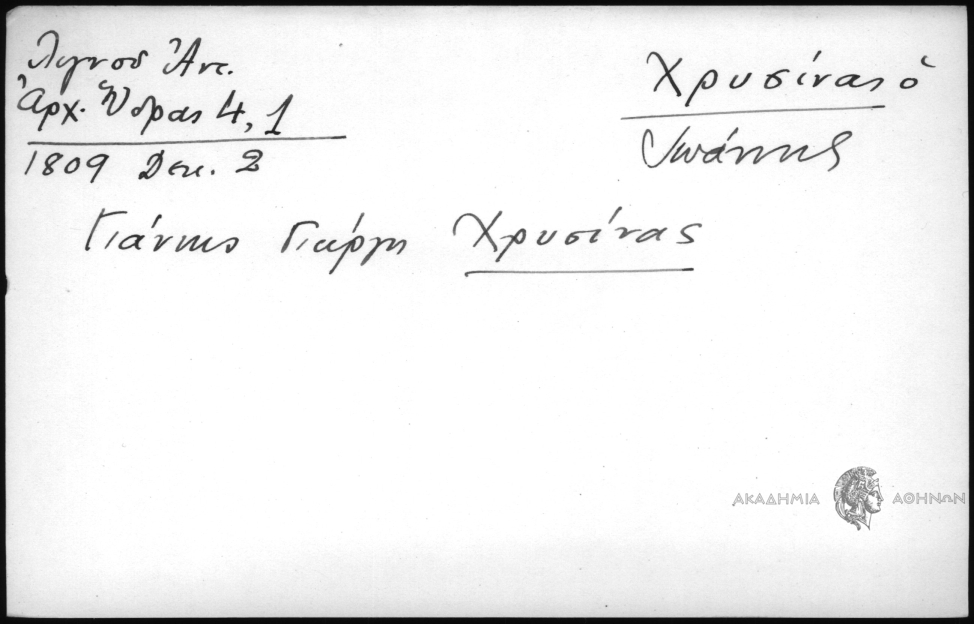 Λιγνοῦ Ἀντ.
Ἀρχ. Ὕδρας 4, 1
1809 Δεκ. 2
Χρυσίνας ὁ
Ἰωάννης
Γιάννης Γιώργη Χρυσίνας
ΑΚΑΔΗΜΙΑ ΑΘΗΝΩΝ